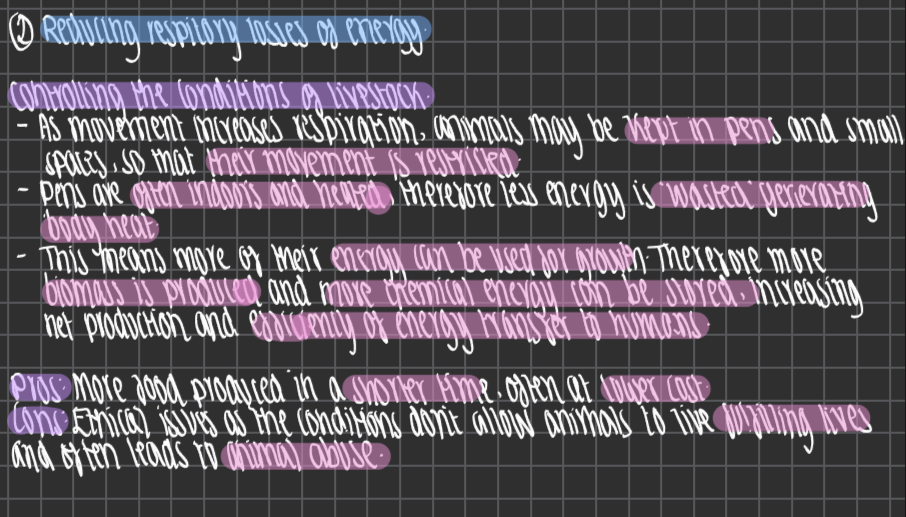 ② Reducing respitory losses of energy.
Controlling the conditions of livestock.
- As movement increases respiration, animals may be kept in pens and small
spaces, so that their movement is restricted.
- Pens are often indoors and heated, therefore less energy is 'wasted' generating
body heat.
- This means more of their energy can be used for growth. Therefore more
biomass is produced, and more chemical energy can be stored, increasing
net production, and efficiency of energy transfer to humans.
Pros: More food produced in a shorter time, often at lower cost.
Cons: Ethical issues as the conditions don't allow animals to live fulfilling lives
and often leads to animal abuse.